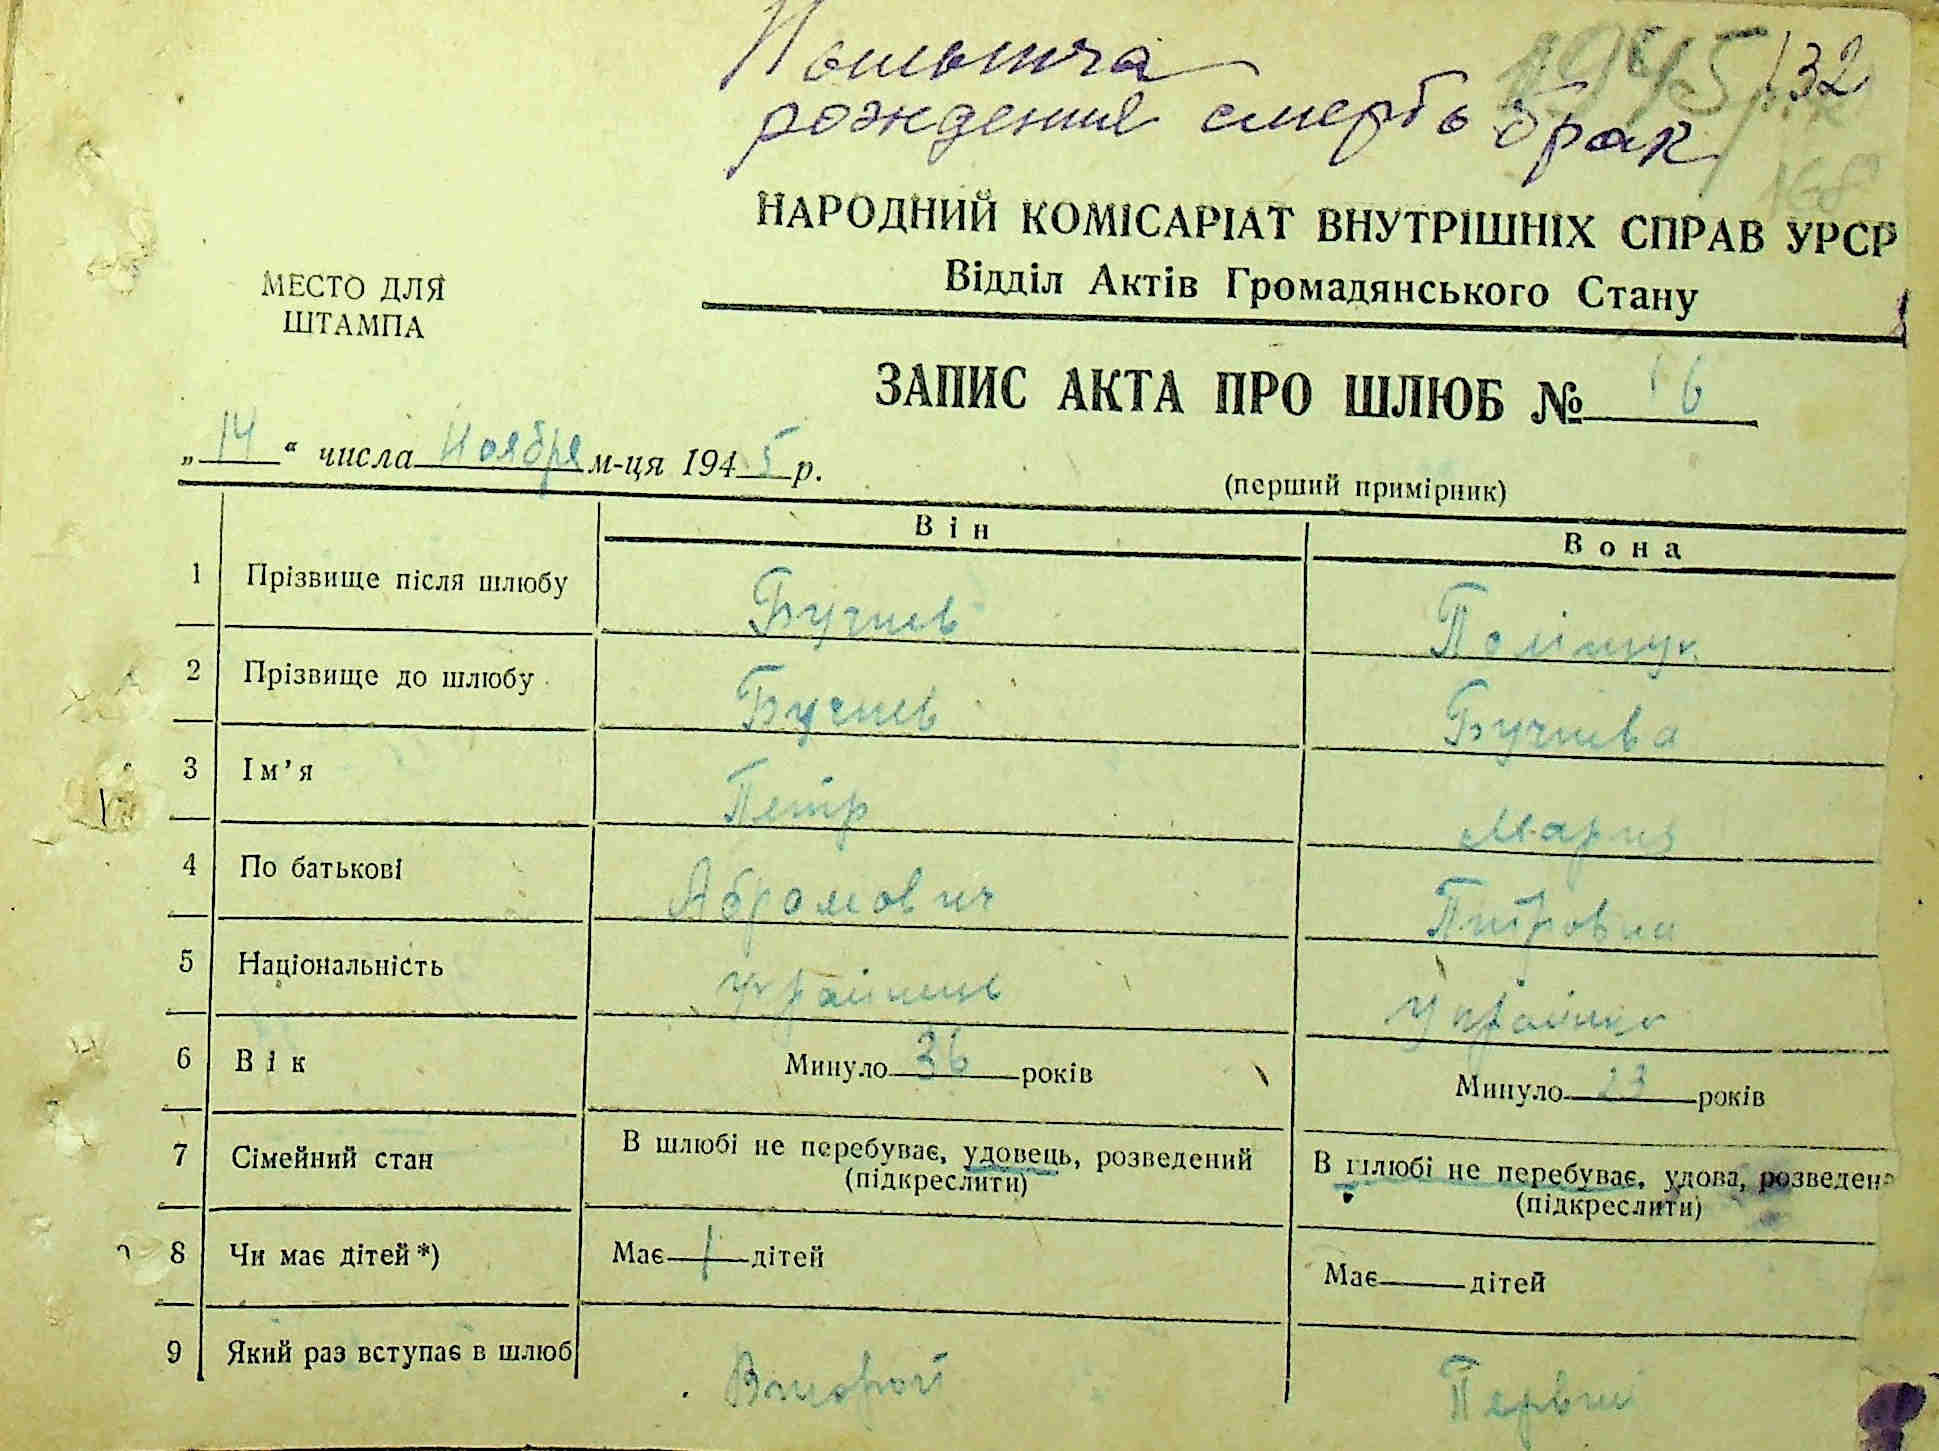 рождения смерть брак
1945 132
168
НАРОДНИЙ КОМІСАРІАТ ВНУТРІШНІХ СПРАВ УРСР
Відділ Актів Громадянського Стану
МЕСТО ДЛЯ
ШТАМПА
ЗАПИС АКТА ПРО ШЛЮБ № 16
„14“ числа Ноября м-ця 1945 р.
(перший примірник)
Він Вона
1 Прізвище після шлюбу Бучнев Поліщук
2 Прізвище до шлюбу Бучнев Бучнева
3 Ім'я Петр Мария
4 По батькові Абрамович Питровна
5 Національність українець Українка
6 Вік Минуло 36 років Минуло 23 років
7 Сімейний стан В шлюбі не перебуває, удовець, розведений В шлюбі не перебуває, удова, розведена
(підкреслити) (підкреслити)
8 Чи має дітей*) Має 1 дітей Має дітей
9 Який раз вступає в шлюб Второй Первий